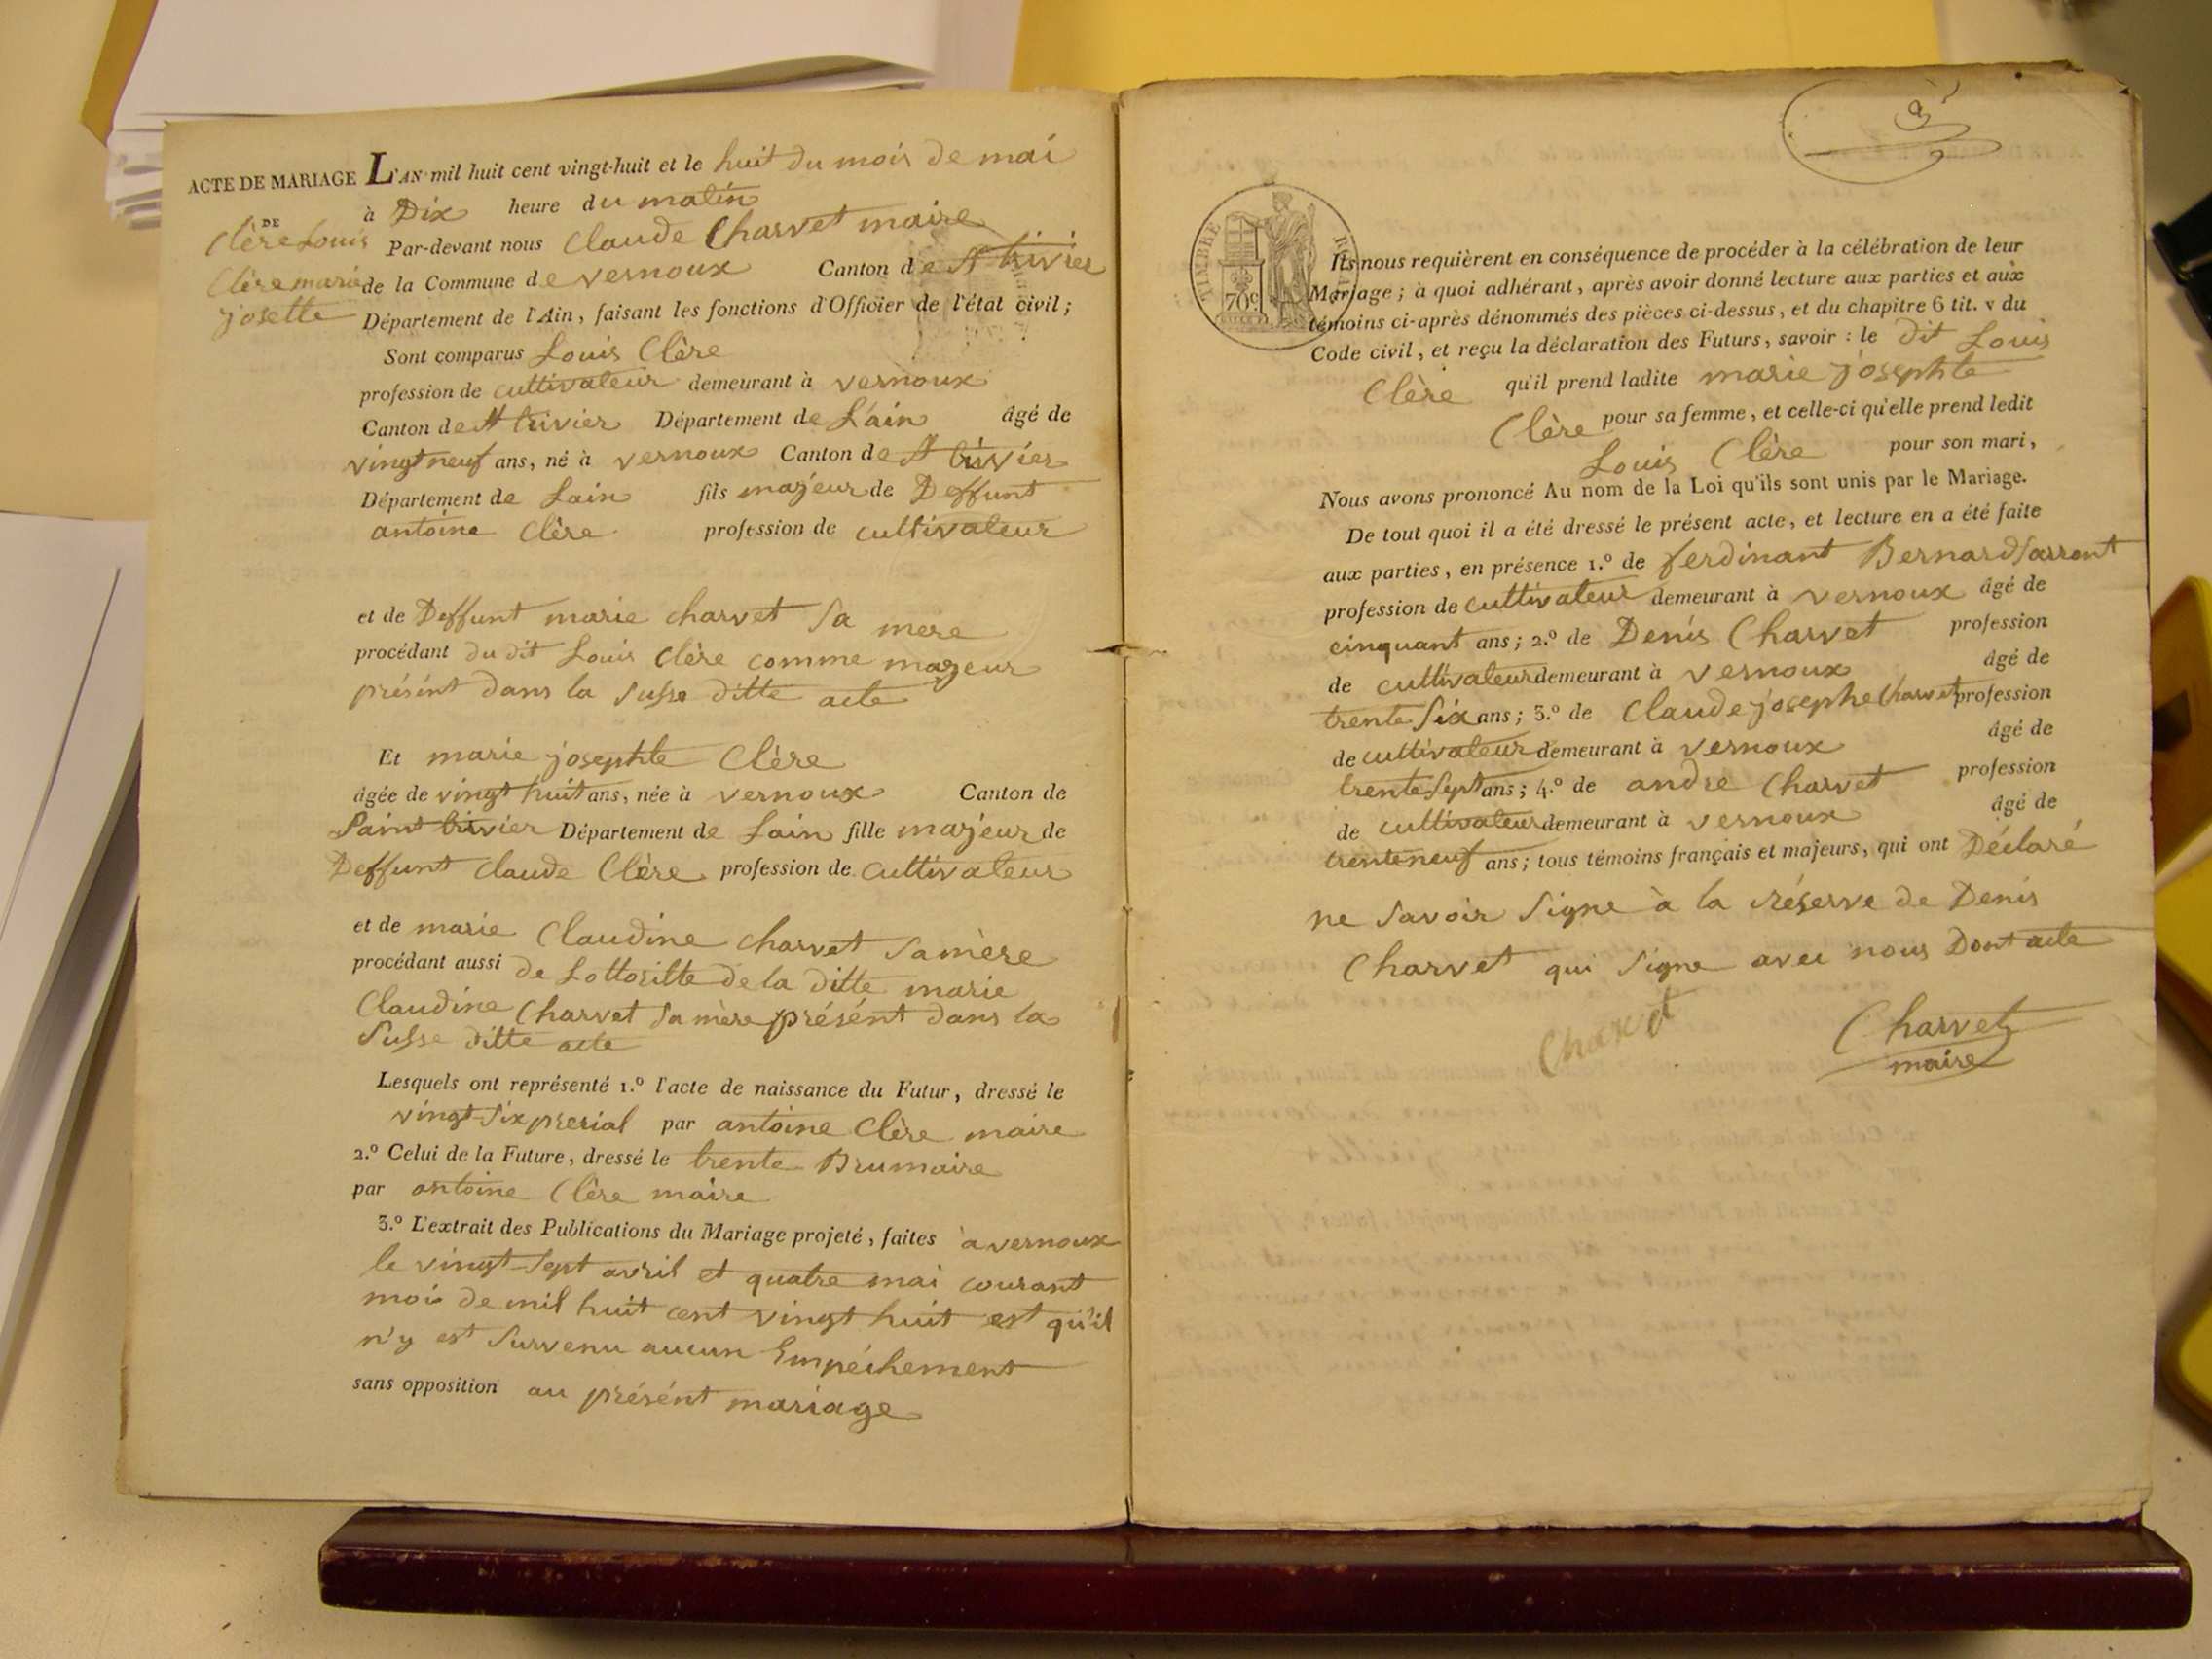 ACTE DE MARIAGE
DE
Clère Louis
Clère marie
josette
L'AN mil huit cent vingt-huit et le huit du mois de mai
à Dix heure du matin
Par-devant nous Claude Charvet maire
de la Commune de vernoux Canton de St trivier
Département de l'Ain, faisant les fonctions d'Officier de l'état civil;
Sont comparus Louis Clère
profession de cultivateur demeurant à vernoux
Canton de St trivier Département de L'ain âgé de
vingt neuf ans, né à vernoux Canton de St trivier
Département de Lain fils majeur de Deffunt
antoine Clère profession de cultivateur
et de Deffunt marie charvet Sa mere
procédant du dit Louis Clère comme majeur
présént dans la Susse ditte acte
Et marie josephte Clère
âgée de vingt huit ans, née à vernoux Canton de
Saint trivier Département de Lain fille majeur de
Deffunt Claude Clère profession de cultivateur
et de marie Claudine charvet Sa mère
procédant aussi de Lottoritte de la ditte marie
Claudine Charvet Sa mère présént dans la
Susse ditte acte
Lesquels ont représenté 1.º l'acte de naissance du Futur, dressé le
vingt-Six prerial par antoine Clère maire
2.º Celui de la Future, dressé le trente Brumaire
par antoine Clère maire
3.º L'extrait des Publications du Mariage projeté, faites à vernoux
le vingt-Sept avril et quatre mai courant
mois de mil huit cent vingt huit est qu'il
n'y est Survenu aucun Empéchement
sans opposition au présént mariage
TIMBRE ROYAL
70c
Ils nous requièrent en conséquence de procéder à la célébration de leur
Mariage; à quoi adhérant, après avoir donné lecture aux parties et aux
témoins ci-après dénommés des pièces ci-dessus, et du chapitre 6 tit. v du
Code civil, et reçu la déclaration des Futurs, savoir: le dit Louis
Clère qu'il prend ladite marie josephte
Clère pour sa femme, et celle-ci qu'elle prend ledit
Louis Clère pour son mari,
Nous avons prononcé Au nom de la Loi qu'ils sont unis par le Mariage.
De tout quoi il a été dressé le présent acte, et lecture en a été faite
aux parties, en présence 1.º de ferdinant Bernard
profession de cultivateur demeurant à vernoux âgé de
cinquant ans; 2.º de Denis Charvet profession
de cultivateur demeurant à vernoux âgé de
trente Six ans; 3.º de Claude josephe Charvet profession
de cultivateur demeurant à vernoux âgé de
trente Sept ans; 4.º de andre Charvet profession
de cultivateur demeurant à vernoux âgé de
trente neuf ans; tous témoins français et majeurs, qui ont Déclaré
ne Savoir Signe à la réserve de Denis
Charvet qui Signe avec nous Dont acte
Charvet
Charvet
maire